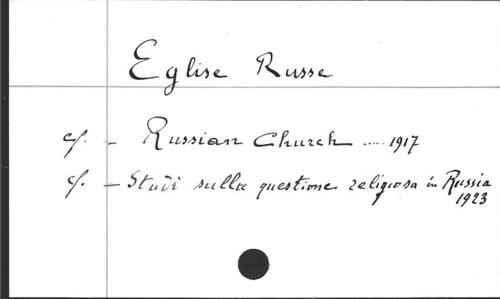 Eglise Russe
cf. - Russian Church ..... 1917
cf. - Studi sulla questione religiosa in Russia
1923